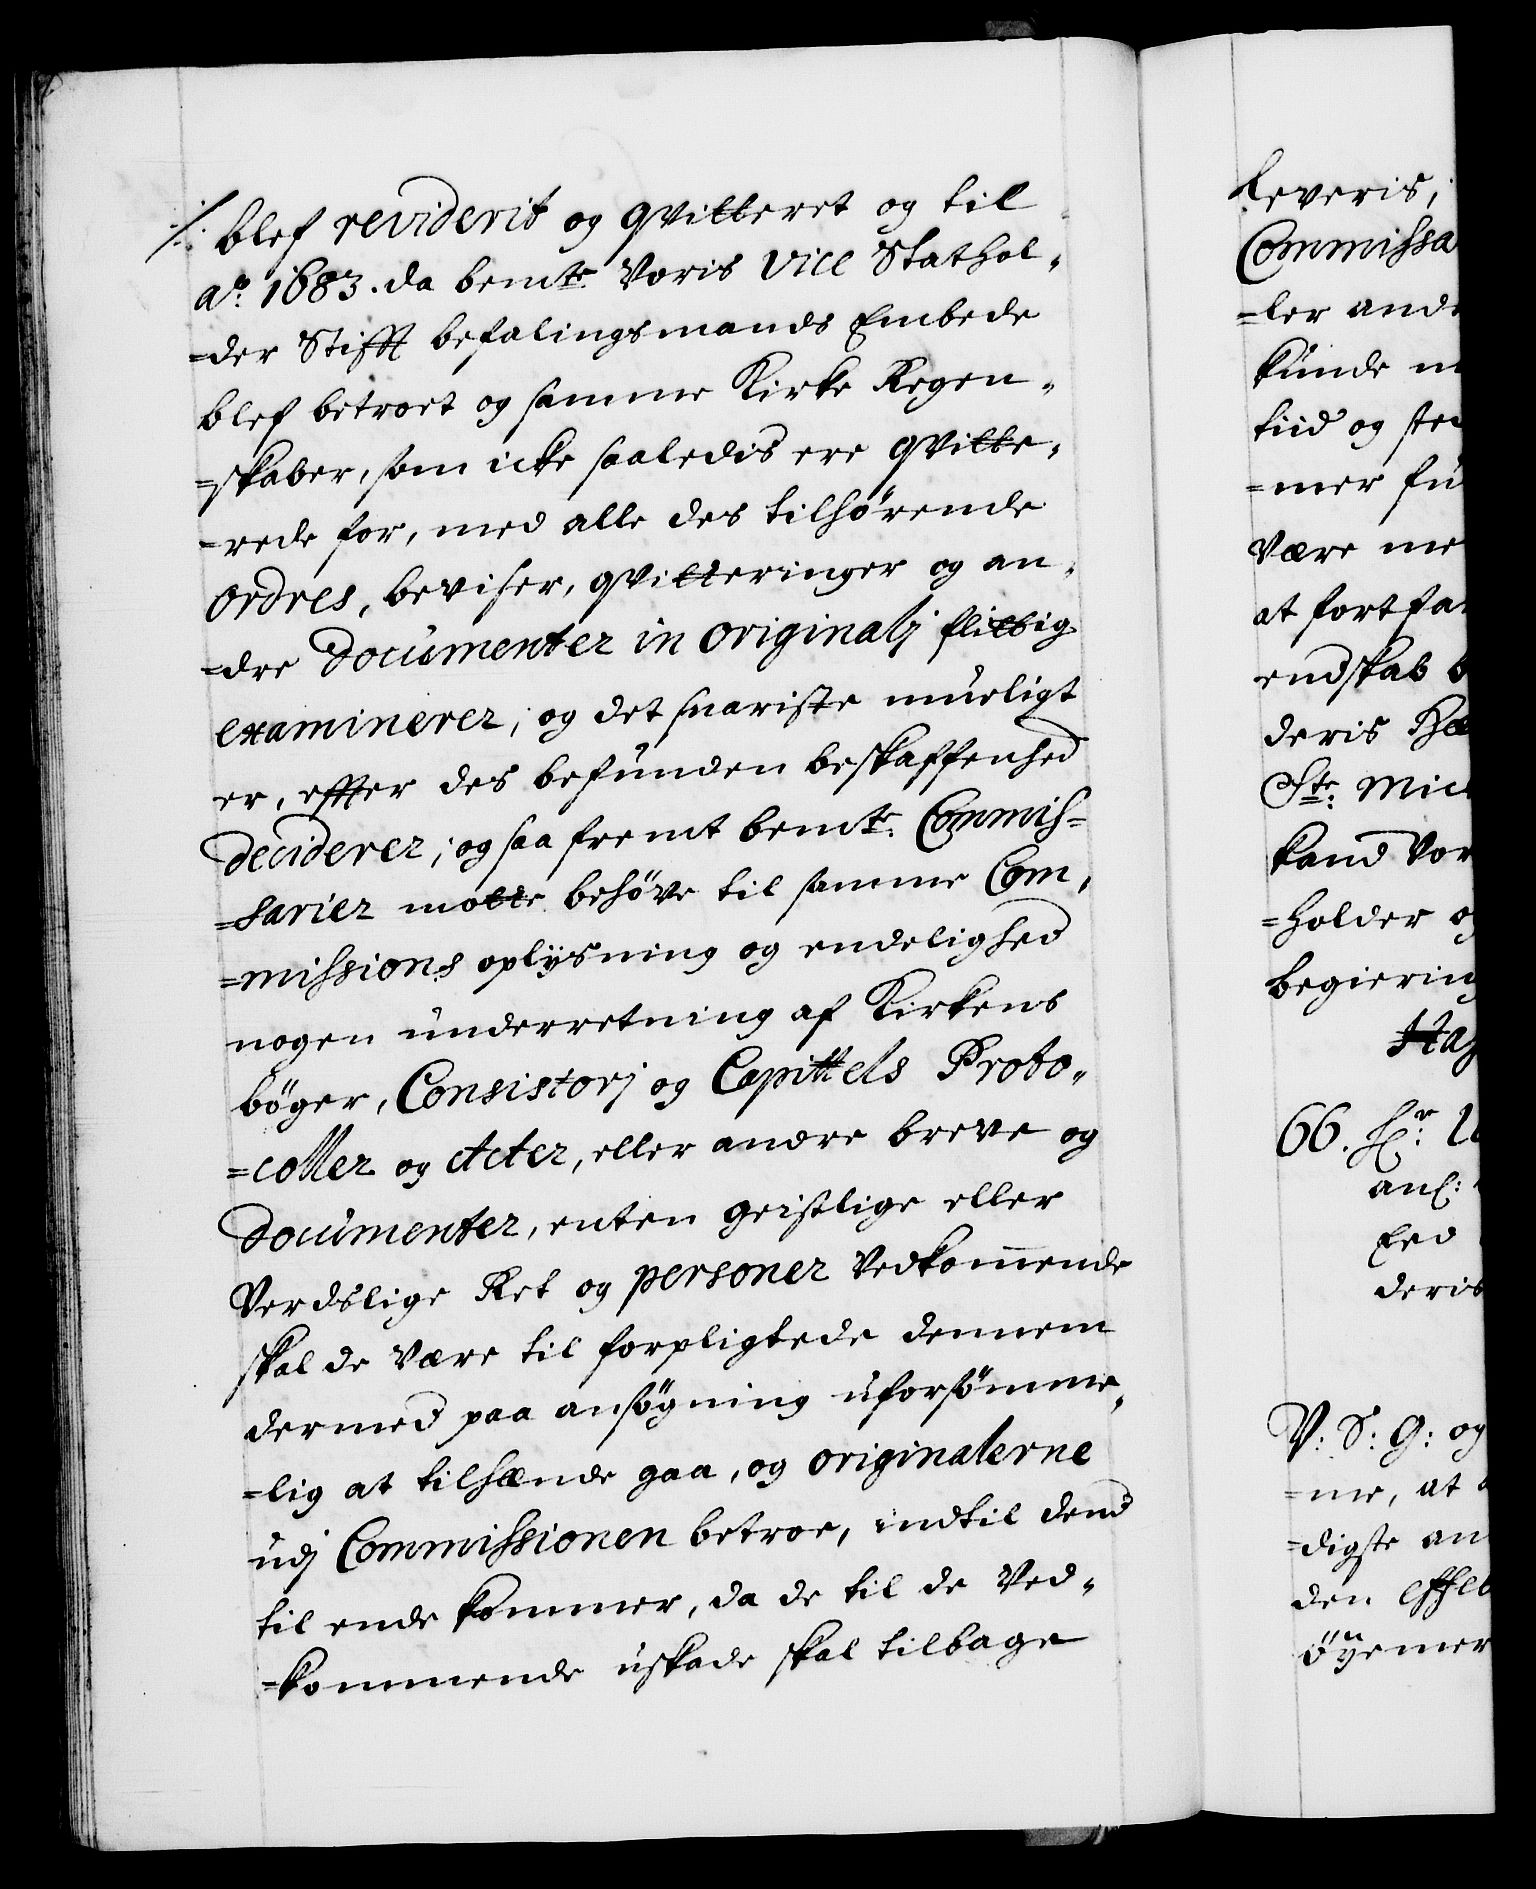 ./. blef reviderit og qvitteret og til
ao: 1683. da bemte Voris Vice Stathol-
=der Stifft befalingsmands Embede
blef betroet og samme Kirke Regen-
=skaber, som icke saaledis ere qvitte-
=rede for, med alle des tilhörende
ordres, beviser, qvitteringer og an-
=dre documenter in originalj flittig
examinerer, og det snariste mueligt
er, effter des befunden beskaffenhed
deciderer; og saa fremt bemte: Commis=
=sarier motte behöve til samme Com-
=missions oplysning og endelighed
nogen underretning af Kirkens
böger, Consistorj og Capittels Proto-
=coller og Acter, eller andre breve og
documenter, enten geistlige eller
Verdslige Ret og personer Vedkom̄ende
skal de være til forpligtede dennem
dermed paa ansögning uforsömme-
=lig at tilhænde gaa, og originalerne
udj Commissionen betroe, indtil dend
til ende kommer, da de til de Ved-
=kommende uskade skal tilbage
leveris,
Commissa
=ler and
kunde
tiid og
=mer
Være
at
endskab
deris
Ste: Mic
kand Vor
=holder
begiering
Hag
66. Hr:
anl:
Eed
deris
V: S: G: og
=me, at
=digste an
den
öyemer